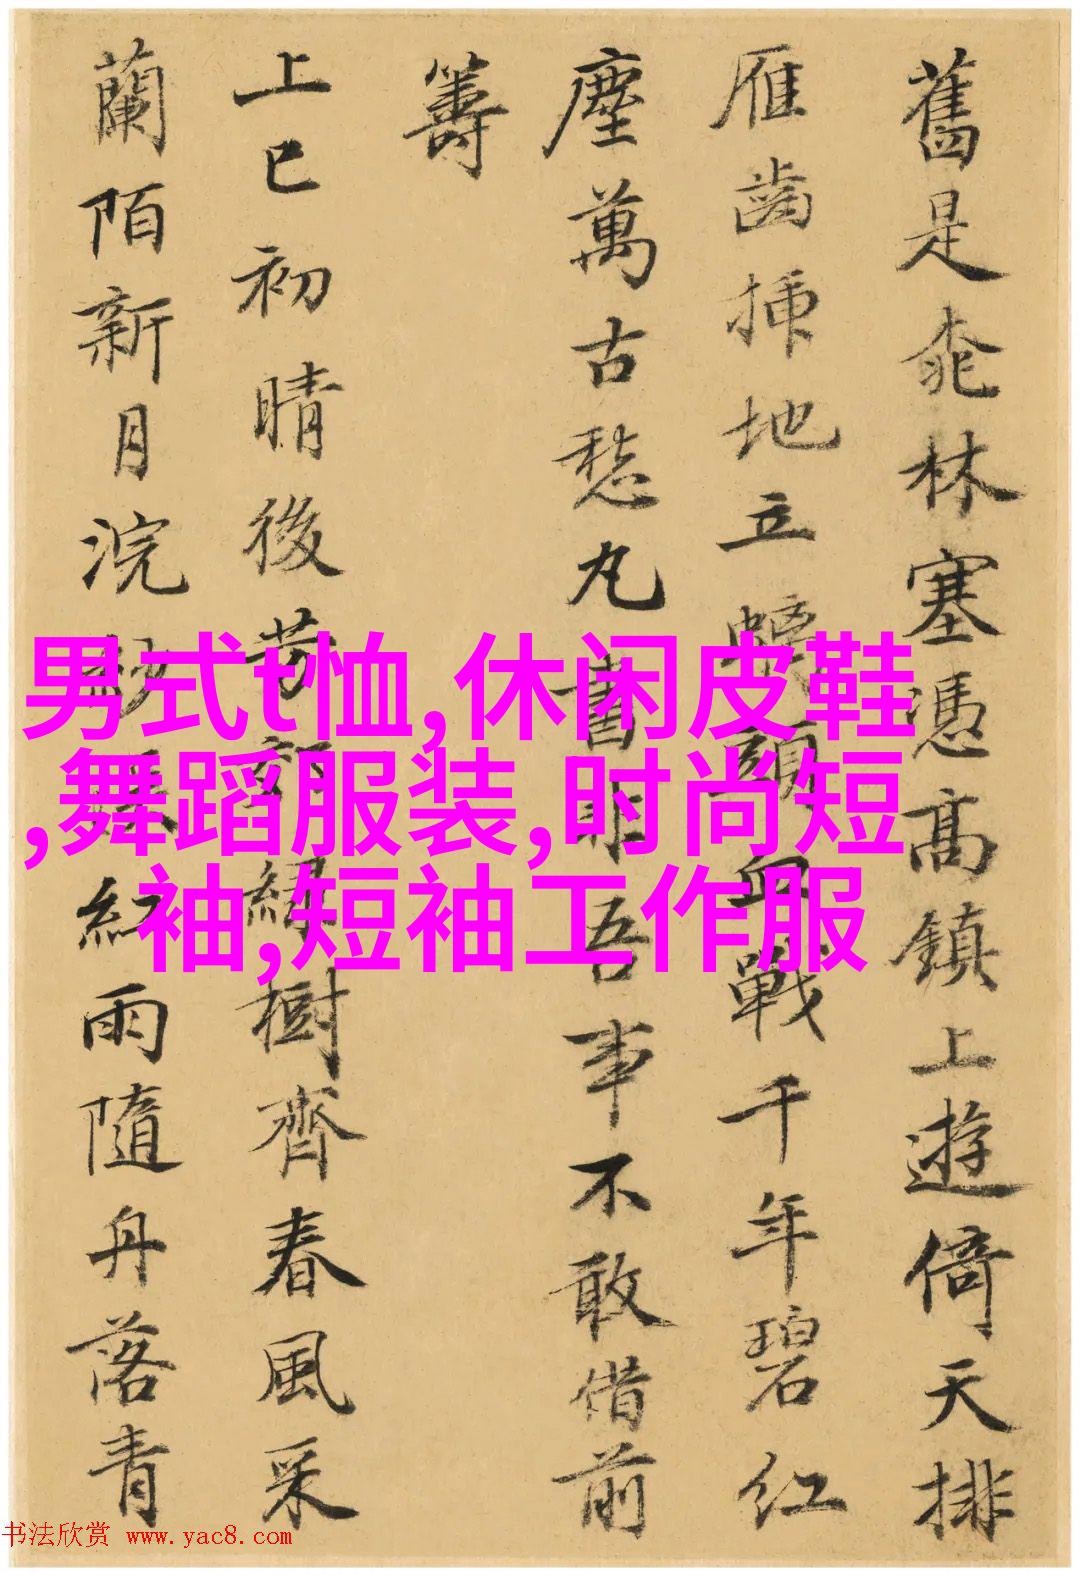 舊是桃林塞憑高鎮上遊倚天排
雁齒插地立螭頭血戰千年碧紅
塵萬古愁丸書非吾事不敢借前
籌
上巳初晴後芳郊綠樹齊春風采
蘭陌新月浣紗溪紅雨隨舟落青
男式t恤,休闲皮鞋
,舞蹈服装,时尚短
袖,短袖工作服
书法欣赏 www.yac8.com